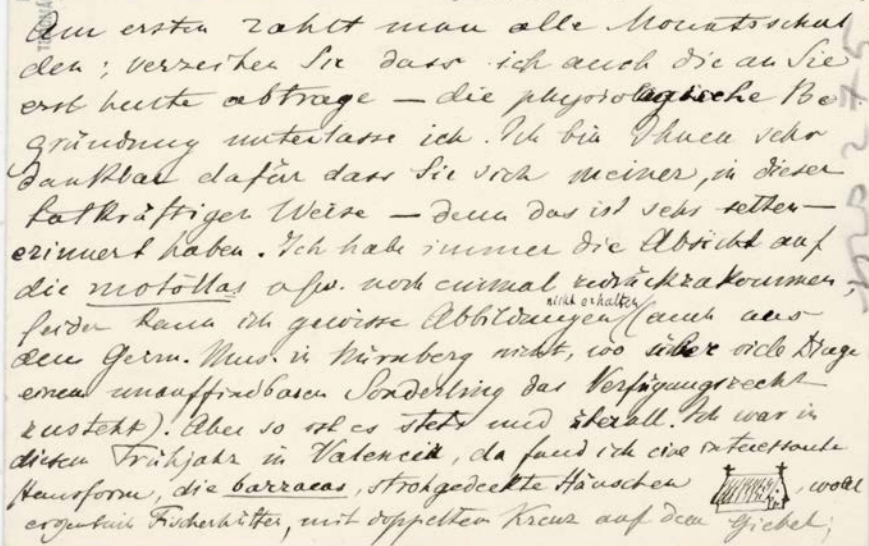 Am ersten zahlt man alle Monatsschul
den; verzeihen Sie dass ich auch die an Sie
erst heute abtrage — die physiologische Be
gründung unterlasse ich. Ich bin Ihnen sehr
dankbar dafür dass Sie sich meiner, in dieser
tatkräftigen Weise — denn das ist sehr selten —
erinnert haben. Ich habe immer die Absicht auf
die motöllas usw. noch einmal zurückzukommen,
leider kann ich gewisse Abbildungen nicht erhalten (auch aus
dem Germ. Mus. in Nürnberg nicht, wo über viele Dinge
einem unauffindbaren Sonderling das Verfügungsrecht
zusteht). Aber so ist es stets und überall. Ich war in
diesem Frühjahr in Valencia, da fand ich eine interessante
Hausform, die barracas, strohgedeckte Häuschen, wohl
Fischerhütten, mit doppeltem Kreuz auf dem Giebel;